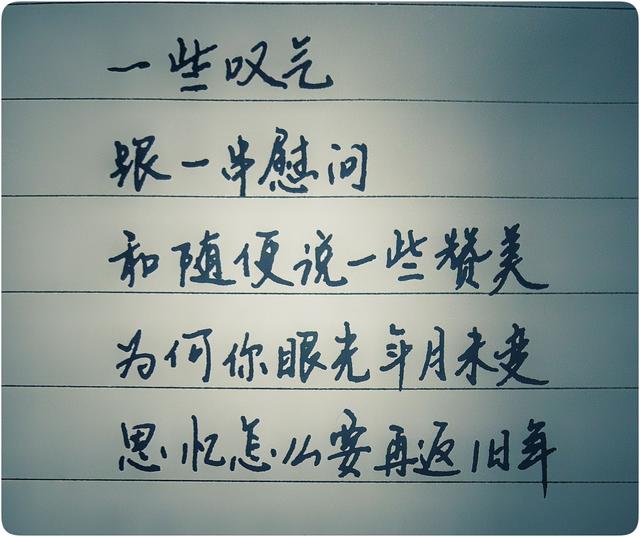 一些叹气
跟一串慰问
和随便说一些赞美
为何你眼光年月未变
思忆怎么要再返旧年